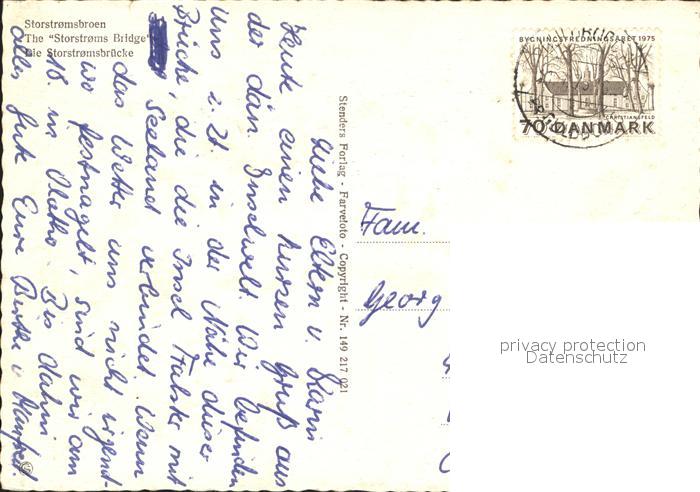 Storstrømsbroen
The "Storstrøms Bridge"
Die Storstrømsbrücke
Liebe Eltern u. Karin
Heute einen kurzen Gruß aus
der dän. Inselwelt. Wir befinden
uns z. Zt. in der Nähe dieser
Brücke, die die Insel Falster mit
Seeland verbindet. Wenn
das Wetter uns nicht irgend-
wo festnagelt, sind wir am
18. in Bis dahin
alles Gute Eure u. Manfred
Stenders Forlag - Farvefoto - Copyright - Nr. 149 217 021
BYGNINGSFREDNINGSÅRET 1975
CHRISTIANSFELD
70 DANMARK
Fam.
Georg
privacy protection
Datenschutz